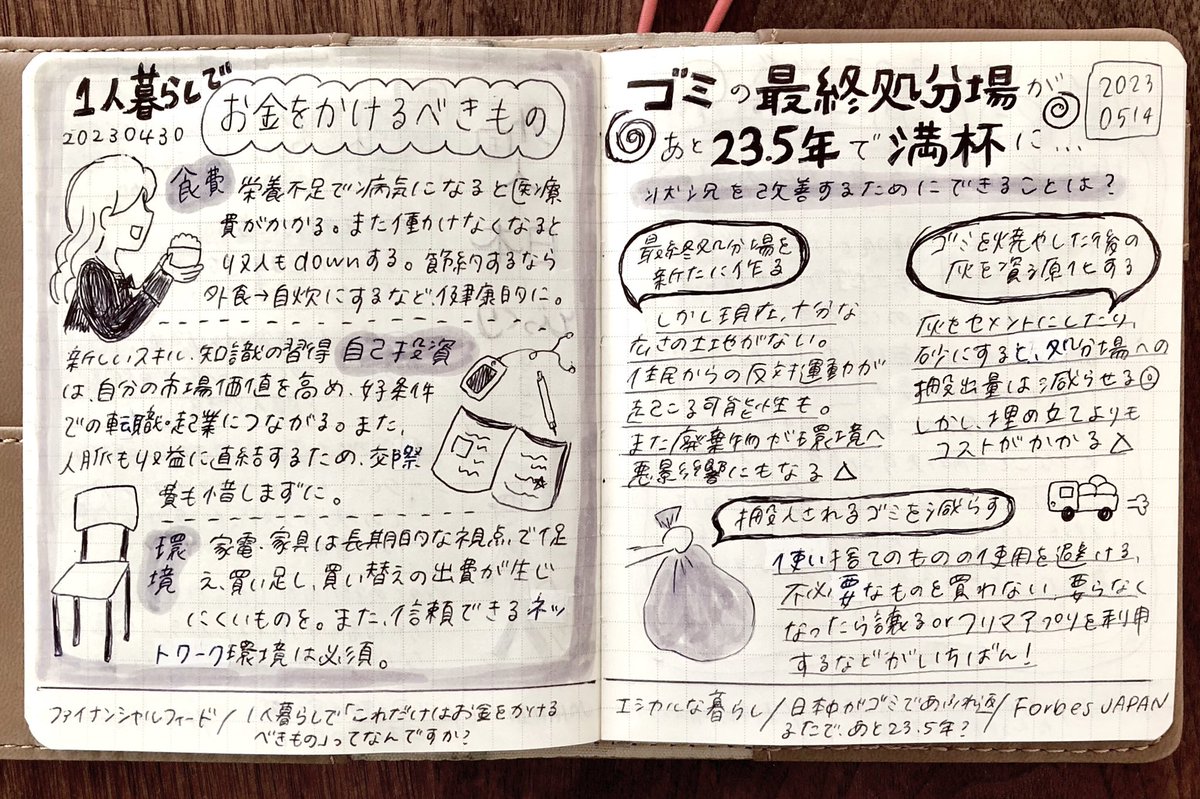 1人暮らしで
お金をかけるべきもの
20230430
食費
栄養不足で病気になると医療
費がかかる。また働かけなくなると
収入もdownする。節約するなら
外食→自炊にするなど、健康的に。
自己投資
新しいスキル、知識の習得
は、自分の市場価値を高め、好条件
での転職・起業につながる。また、
人脈も収益に直結するため、交際
費も惜しまずに。
環境
家電、家具は長期的な視点で使
え、買い足し、買い替えの出費が生じ
にくいものを。また、信頼できるネッ
トワーク環境は必須。
ファイナンシャルフィード/1人暮らしで「これだけはお金をかける
べきもの」ってなんですか?
ゴミの最終処分場が
あと23.5年で満杯に...
2023
0514
状況を改善するためにできることは?
最終処分場を
新たに作る
しかし現在、十分な
広さの土地がない。
住民からの反対運動が
起こる可能性も。
また廃棄物が環境へ
悪影響にもなる△
ゴミを燃やした後の
灰を資源化する
灰をセメントにしたり、
砂にすると、処分場への
搬出量は減らせる◎
しかし、埋め立てよりも
コストがかかる△
搬入されるゴミを減らす
使い捨てのものの使用を避ける、
不必要なものを買わない、要らなく
なったら譲るorフリマアプリを利用
するなどがいちばん!
エシカルな暮らし/日本中がゴミであふれ返
るまで、あと23.5年?/Forbes JAPAN